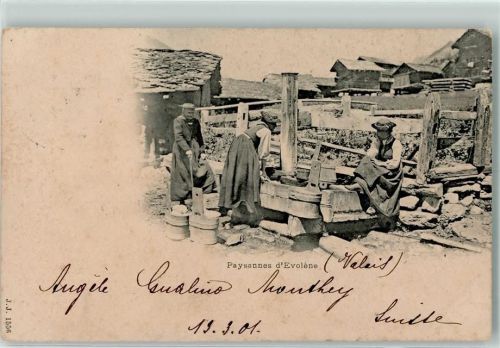 Paysannes d'Evolène (Valais)
Angèle Gualino Monthey
Suisse
19.3.01.
J. J. 1556